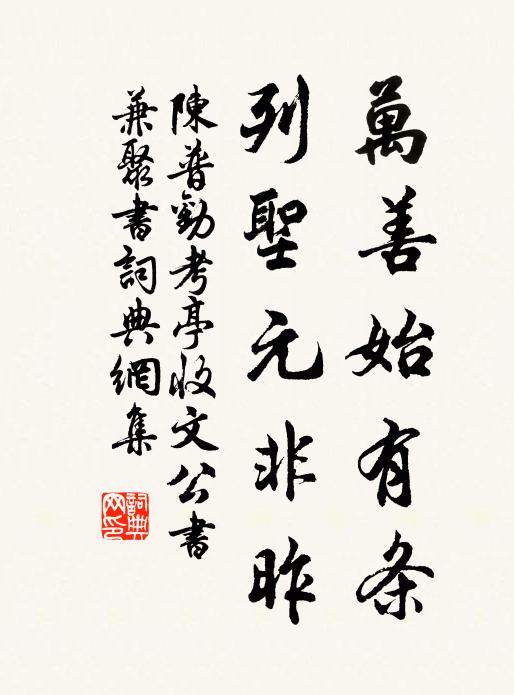 萬善始有条
列聖元非昨
陳普勸考亭收文公書
兼聚書詞典網集
詞典网印